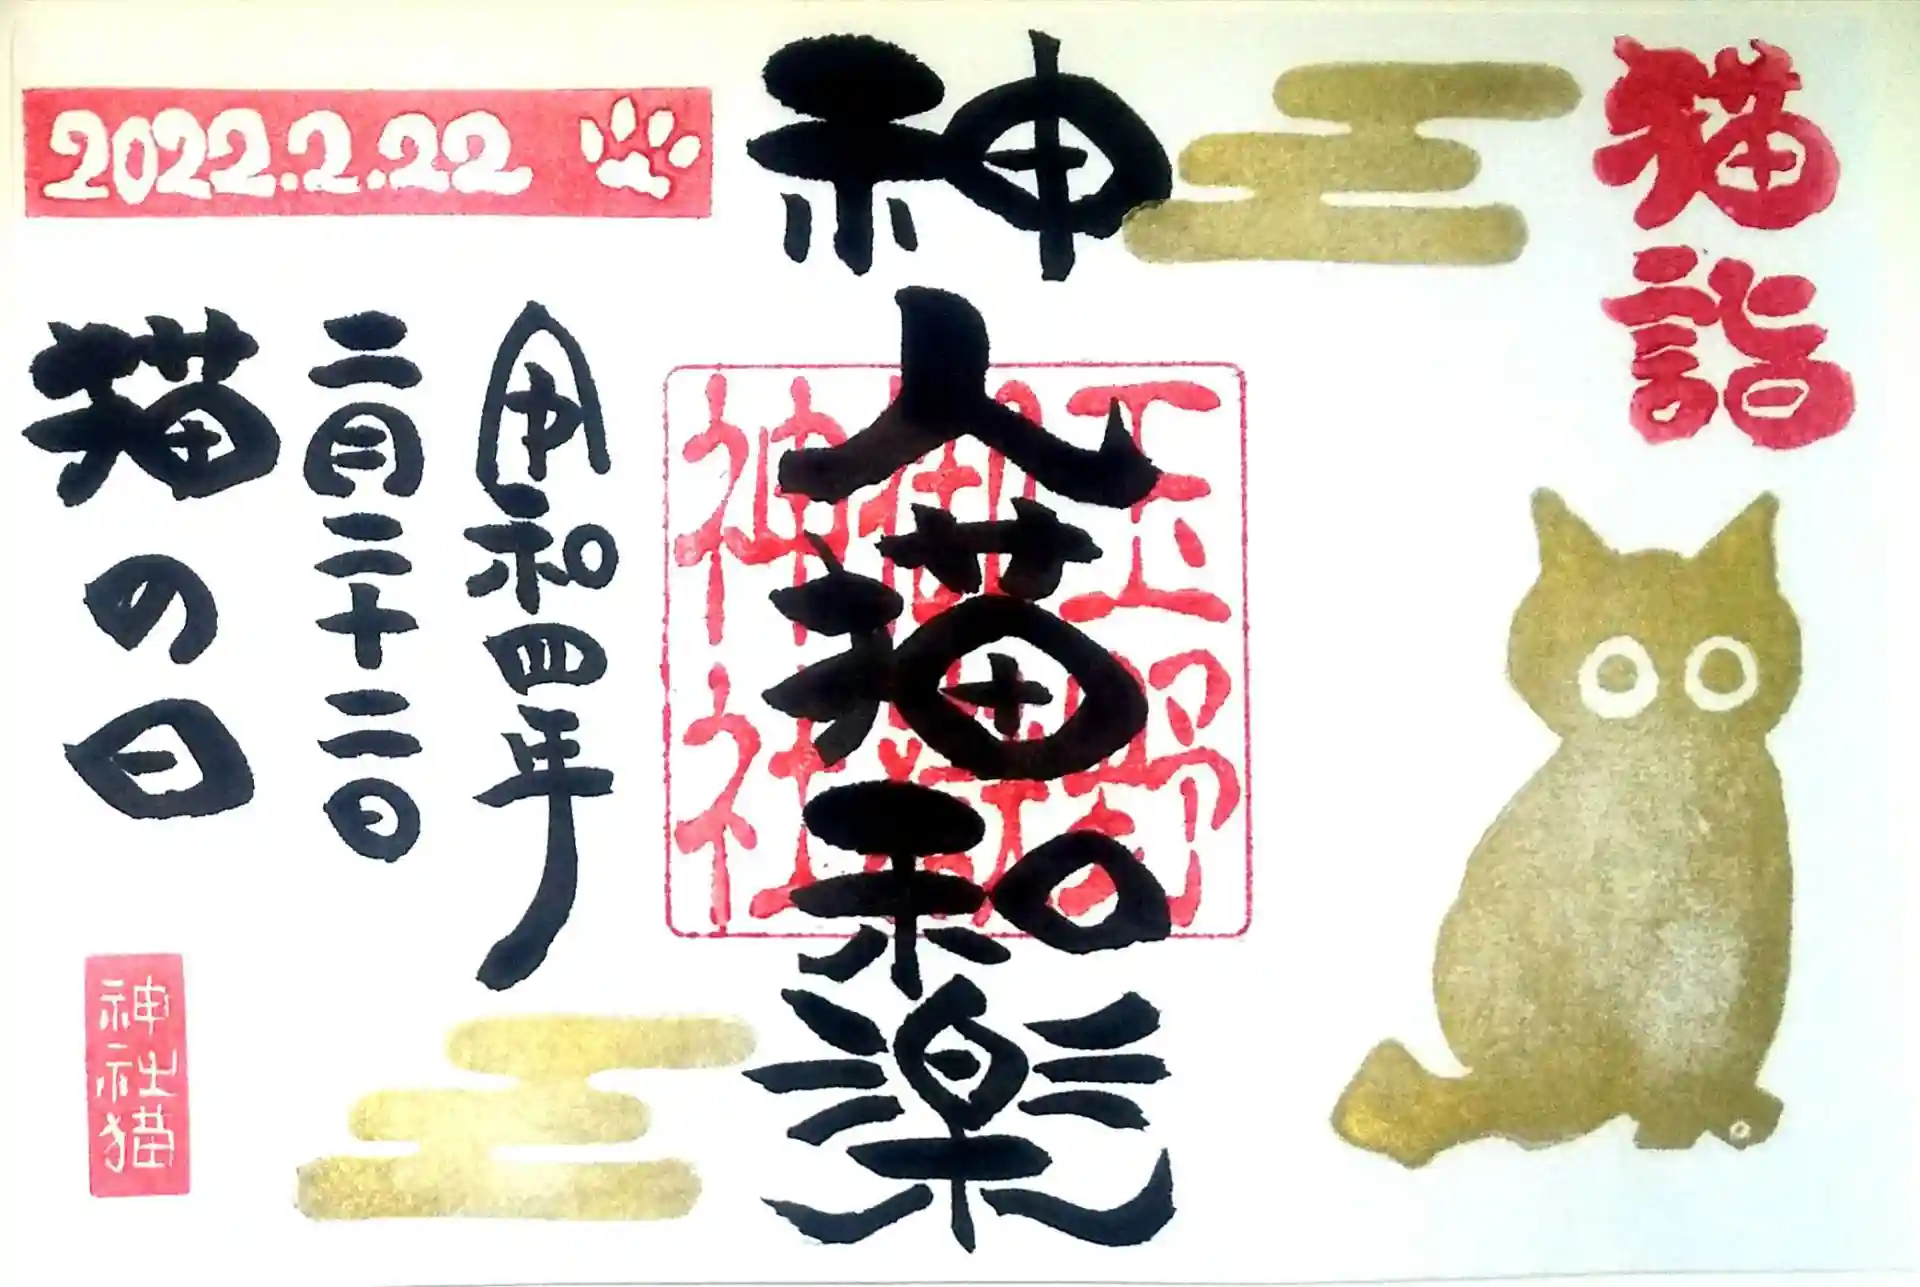 猫詣
神人猫和楽
玉野
御嶽
神社
2022.2.22
令和四年
二月二十二日
猫の日
神社猫